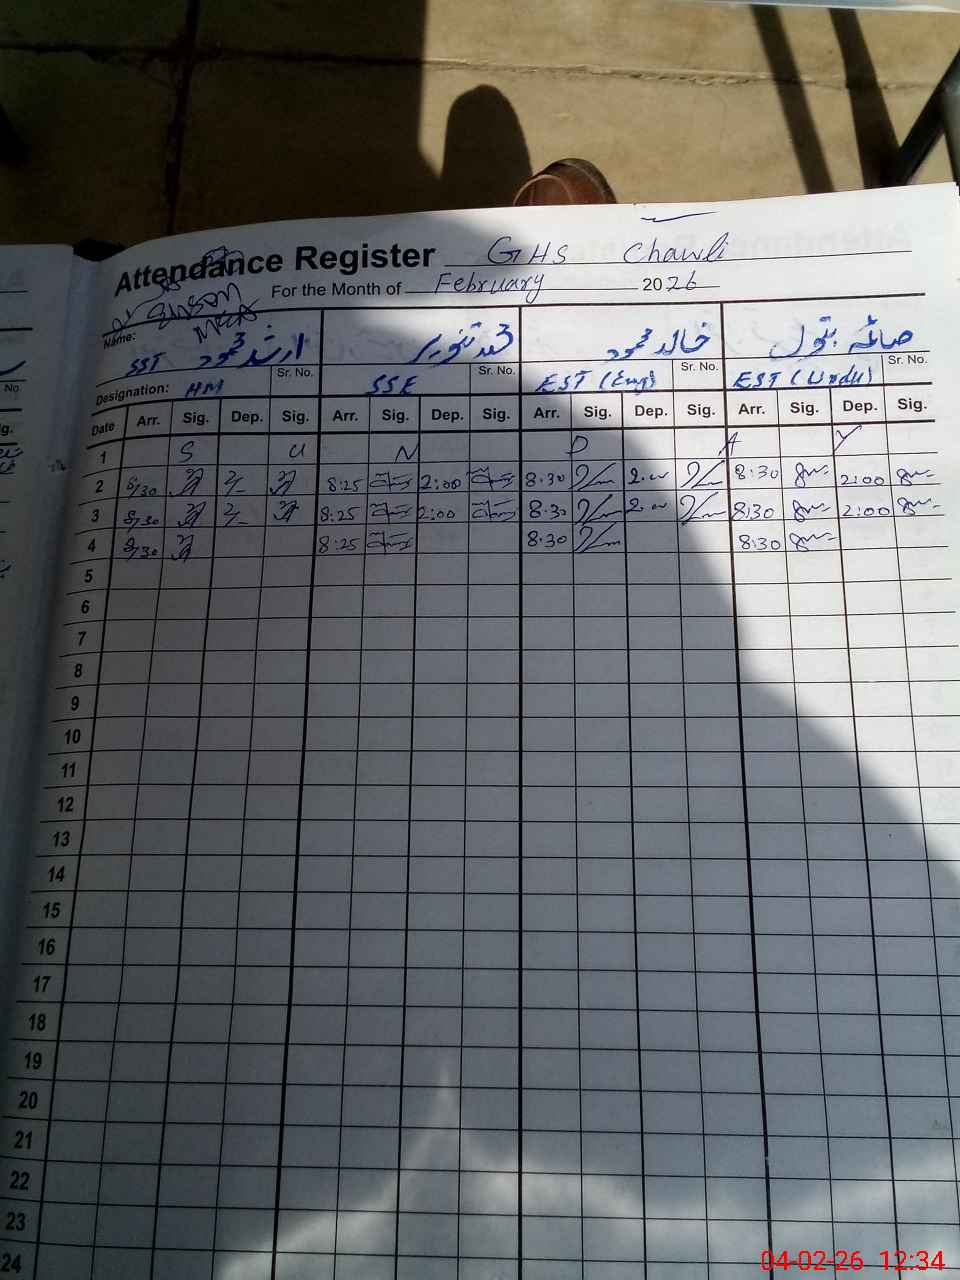 Attendance Register GHS Chawli
For the Month of February 2026
Name: ارشد محمود SST محمد تنویر خالد محمود صائمہ بتول
Sr. No. Sr. No. Sr. No. Sr. No.
Designation: HM SSE EST (Eng) EST (Urdu)
Date Arr. Sig. Dep. Sig. Arr. Sig. Dep. Sig. Arr. Sig. Dep. Sig. Arr. Sig. Dep. Sig.
1 S U N D A Y
2 8/30 2/- 8:25 2:00 8:30 2.00 8:30 2:00
3 8/30 2/- 8:25 2:00 8:30 2.00 8:30 2:00
4 8/30 8:25 8:30 8:30
5
6
7
8
9
10
11
12
13
14
15
16
17
18
19
20
21
22
23
24
No.
ig.
04-02-26 12:34